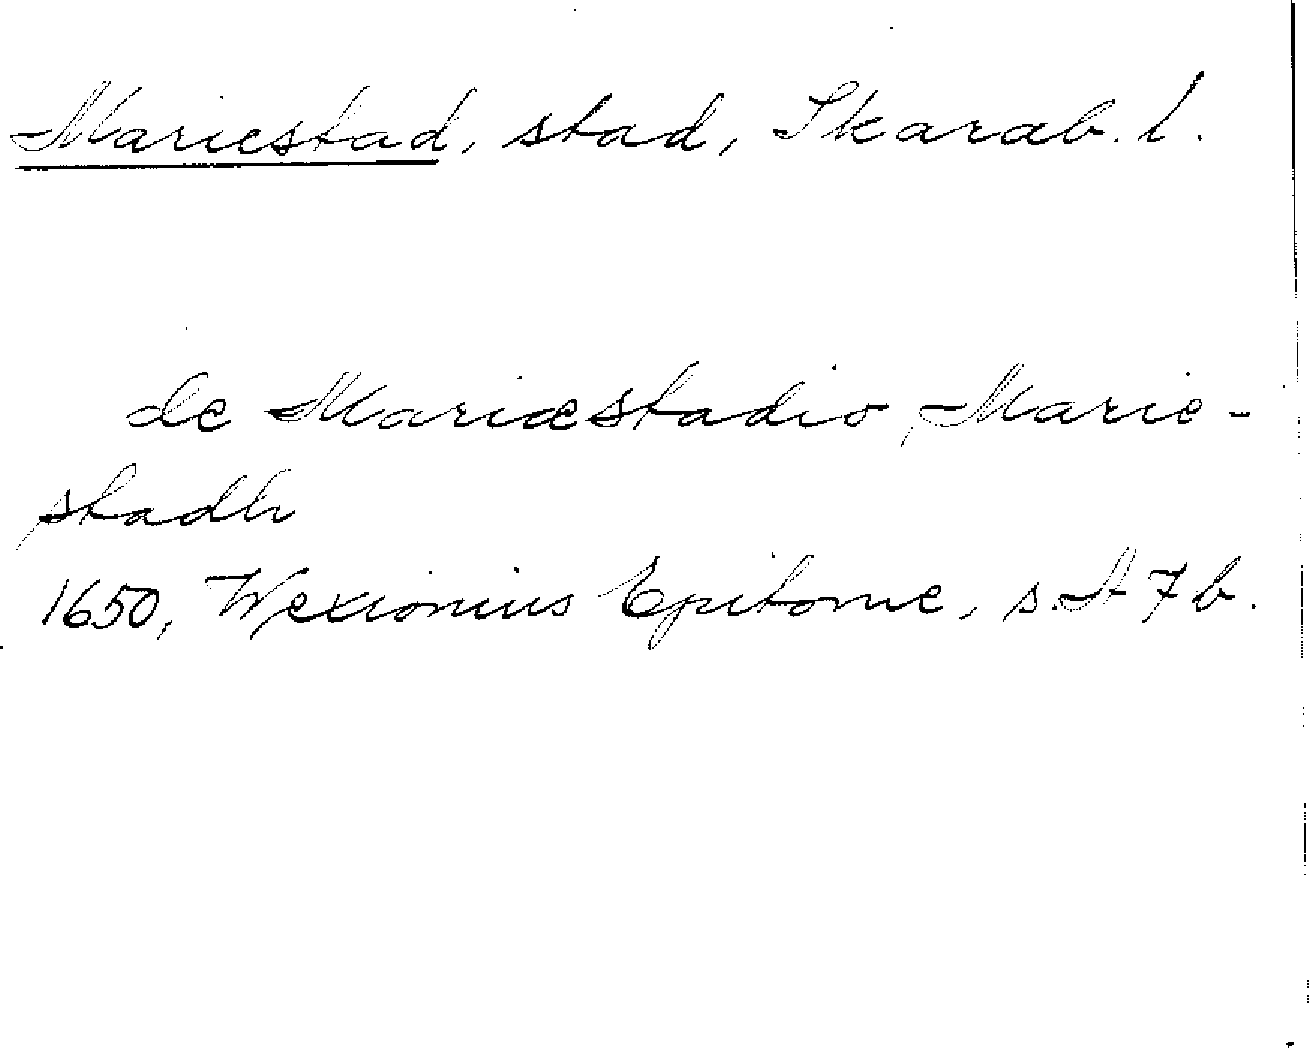 Mariestad, stad, Skarab. l.
de Mariæstadio, Marie-
stadh
1650, Wexionius Epitome, s. 7 b.